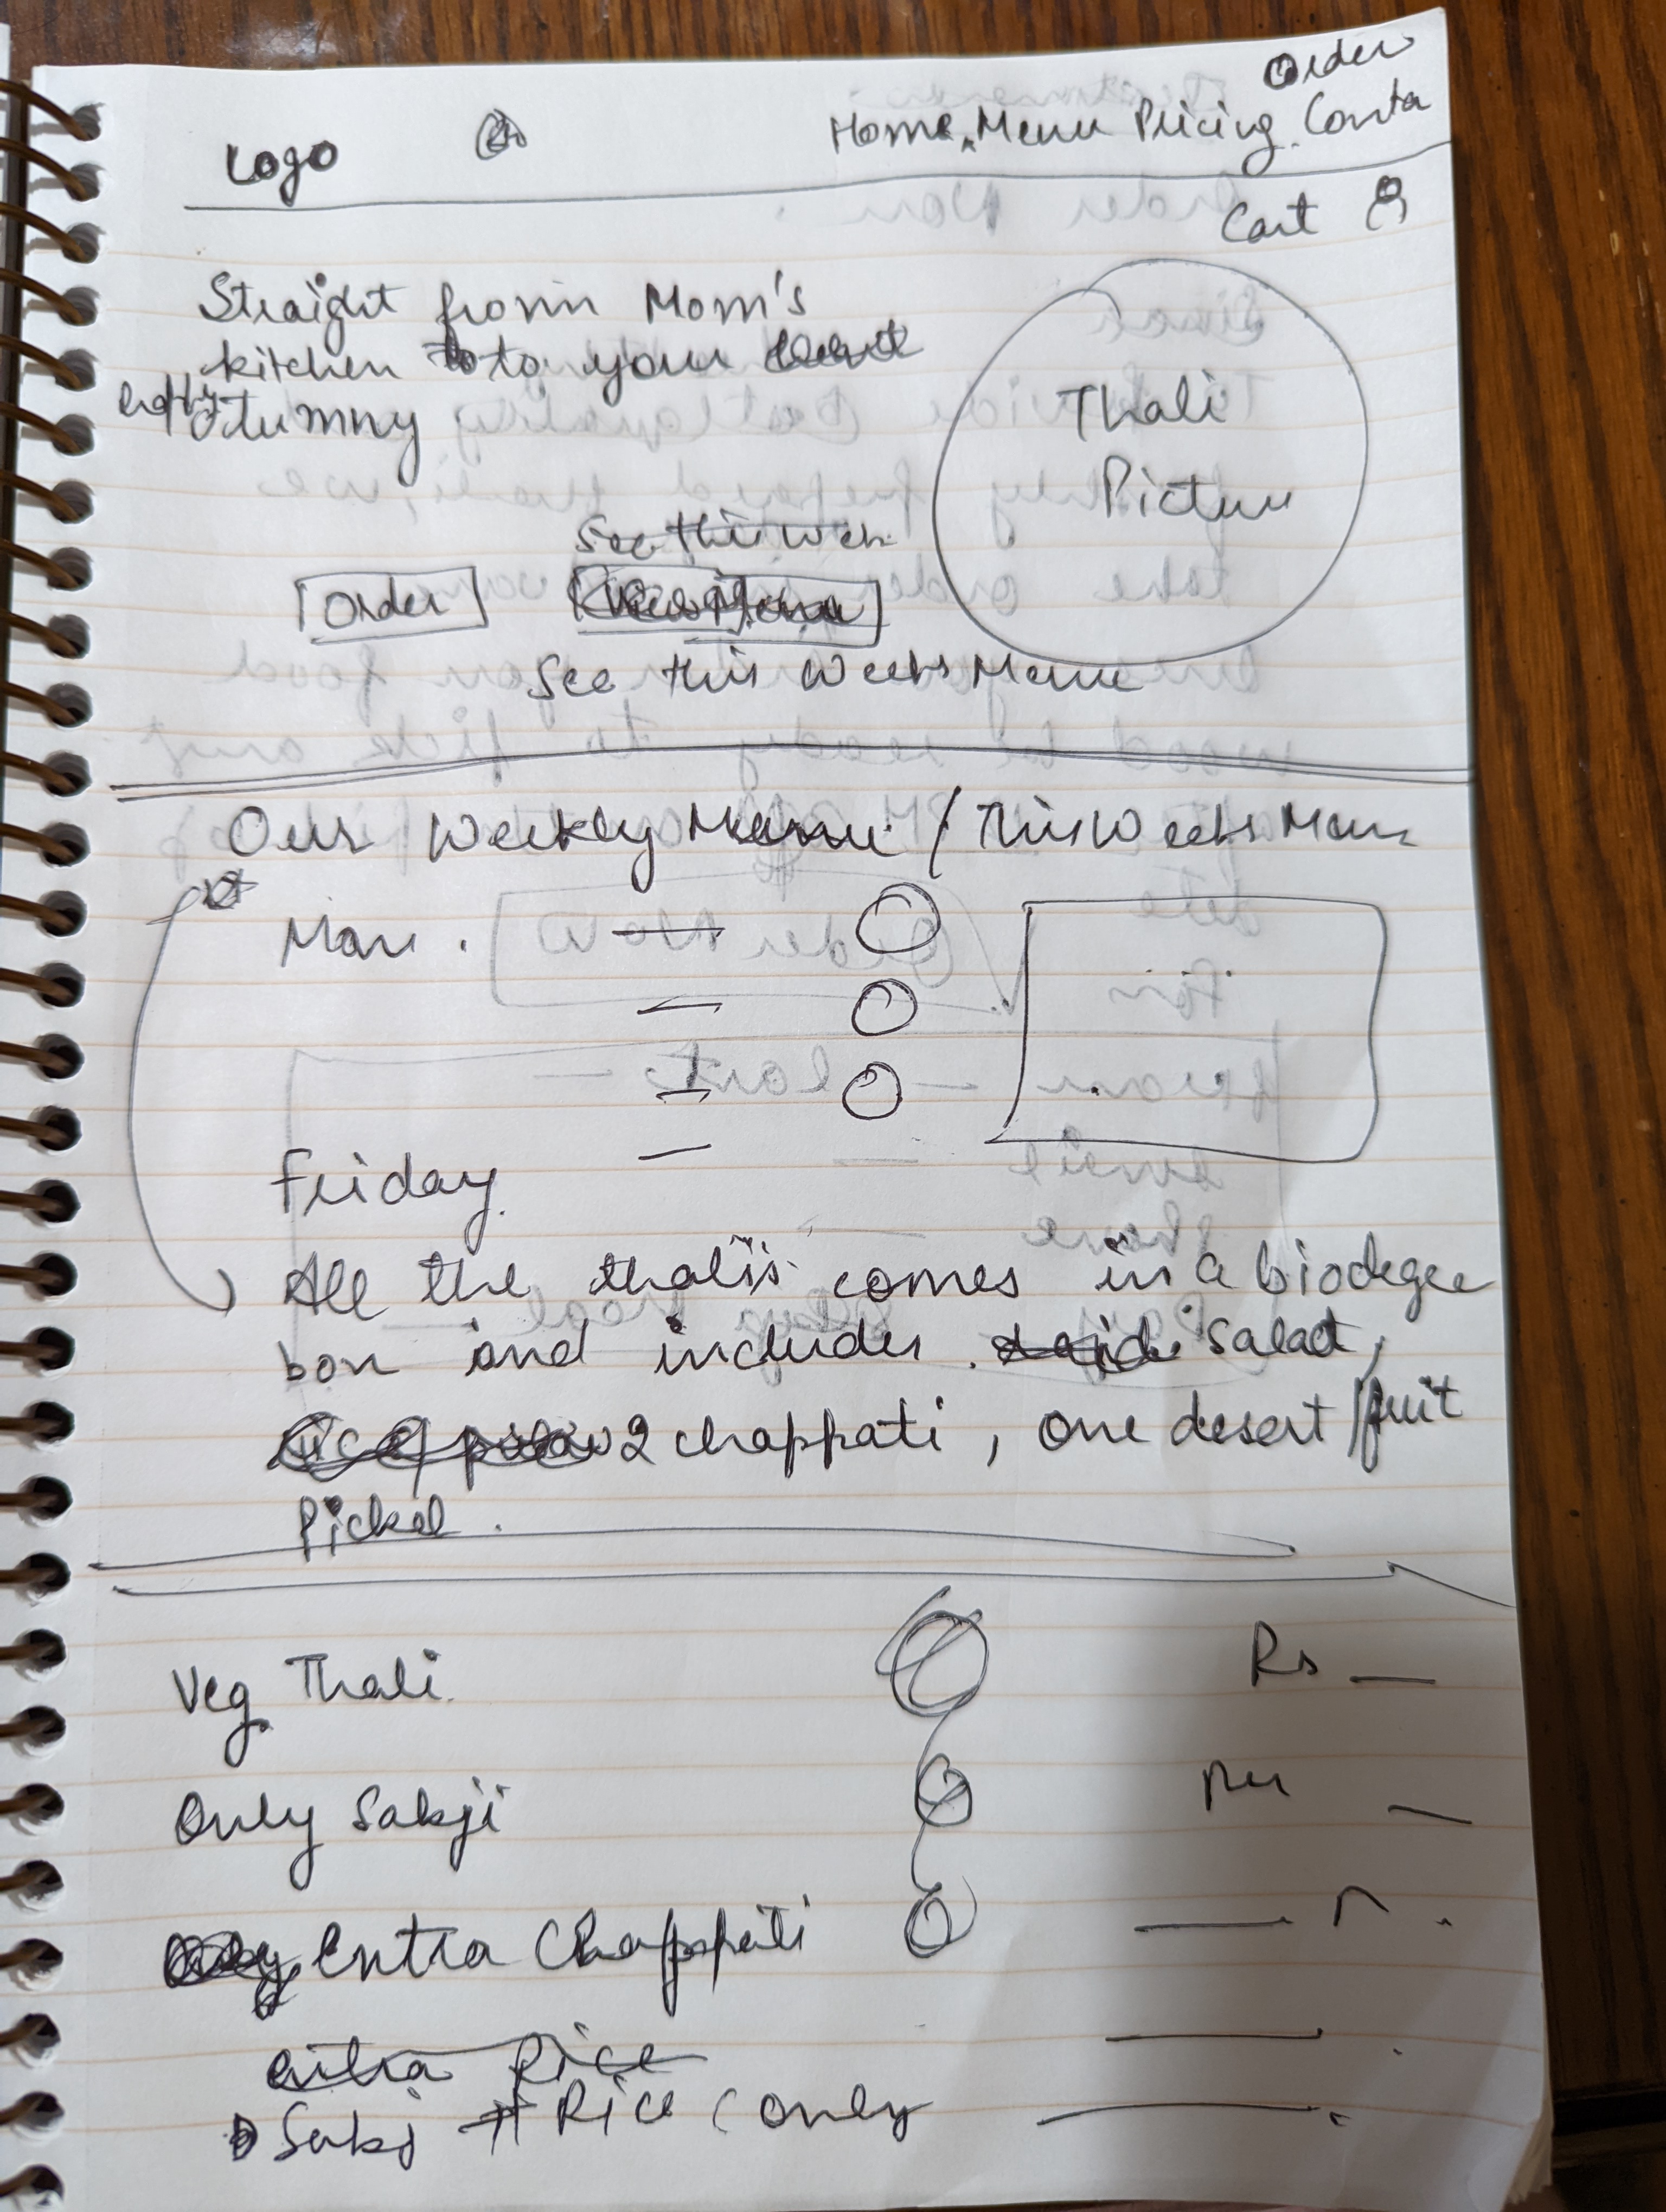 Order
Logo Home, Menu Pricing. Conta
Cart
Straight from Mom's
kitchen to your
tummy
Thali
Picture
See this week
Order
See this Weeks Menu
Our Weekly Menu / This Weeks Menu
Mon.
Friday.
All the thalis comes in a biodegre
box and includes. Salad,
2 chappati, one desert / fruit
Pickel.
Veg Thali. Rs
Only Sabji
Extra Chappati
extra Rice
Sabj + Rice (only